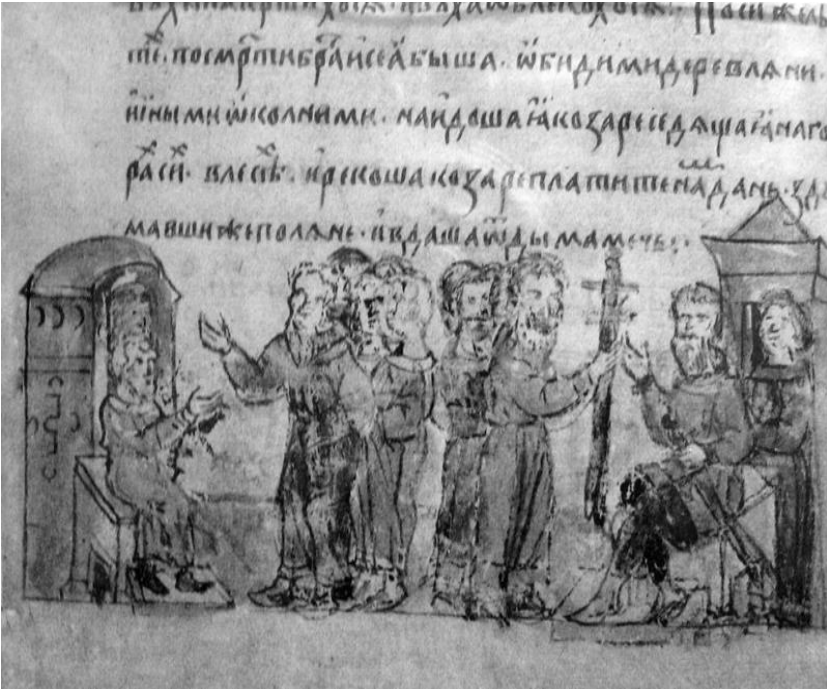 Посиⷯ жель
тѣⷯ. посмр҃ти браⷮ҇и сеѧ быша. ѡбидими деревлѧни.
и иными ѡколними. наидоша ꙗ козаре седѧщаꙗ на го
раⷯ сиⷯ. влесѣⷯ. и рекоша козаре платите наⷨ дань. здꙋ
мавши же полѧне. и вдаша ѿ дыма мечь: